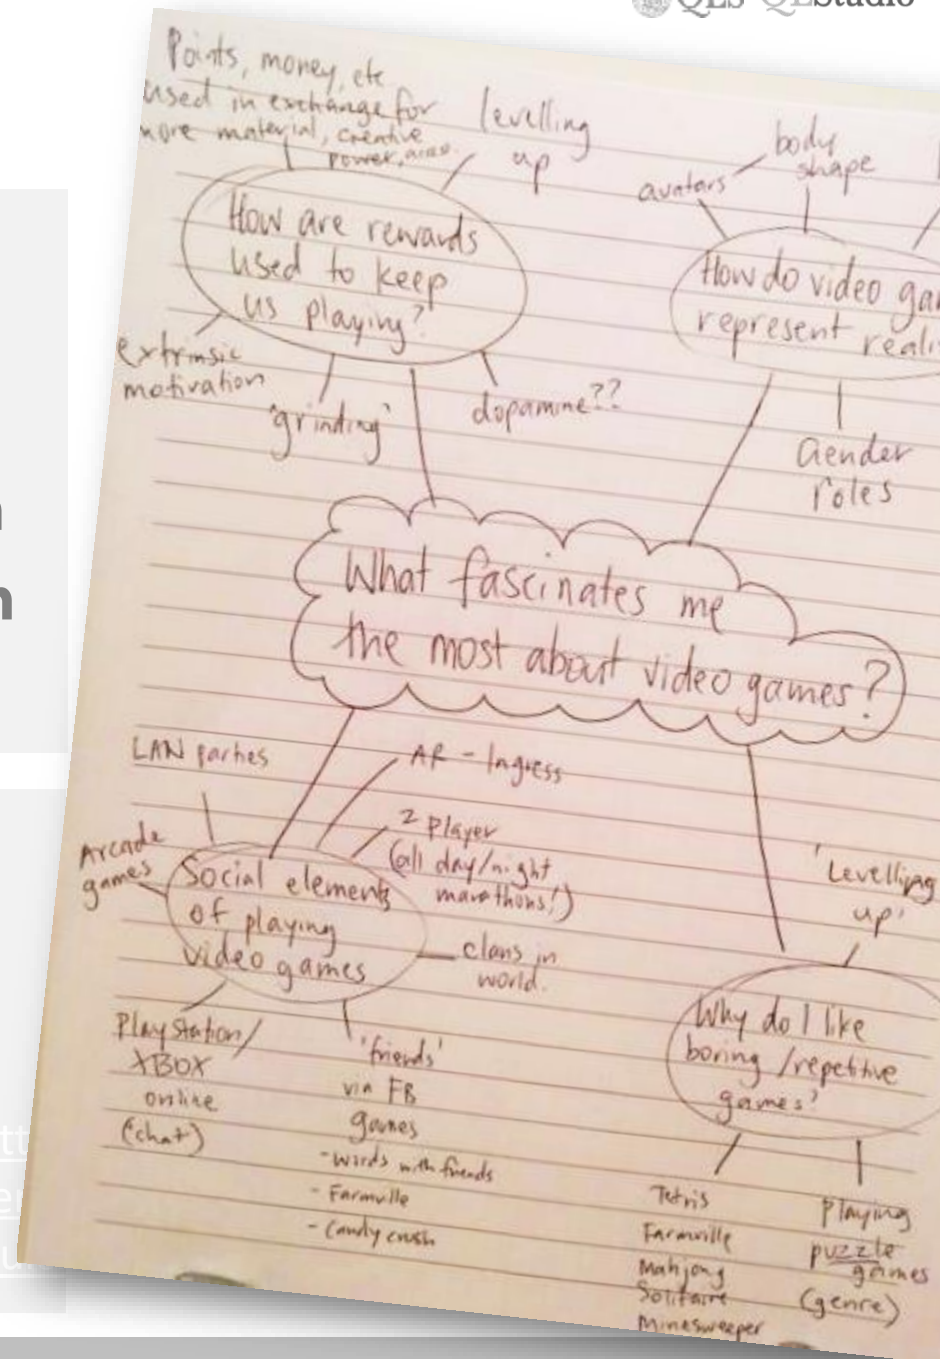 Points, money, etc
used in exchange for
more material, creative
power, areas.
levelling
up
How are rewards
used to keep
us playing?
extrinsic
motivation
'grinding'
dopamine??
avatars
body
shape
How do video
represent
Gender
roles
What fascinates me
the most about video games?
LAN parties
Arcade
games
AR - Ingress
2 Player
(all day/night
marathons!)
Social elements
of playing
video games
clans in
world.
Playstation/
XBOX
online
(chat)
'friends'
via FB
games
- Words with friends
- Farmville
- Candy crush
'Levelling
up'
Why do I like
boring /repetitive
games?
Tetris
Farmville
Mahjong
Solitaire
Minesweeper
Playing
puzzle
games
(genre)